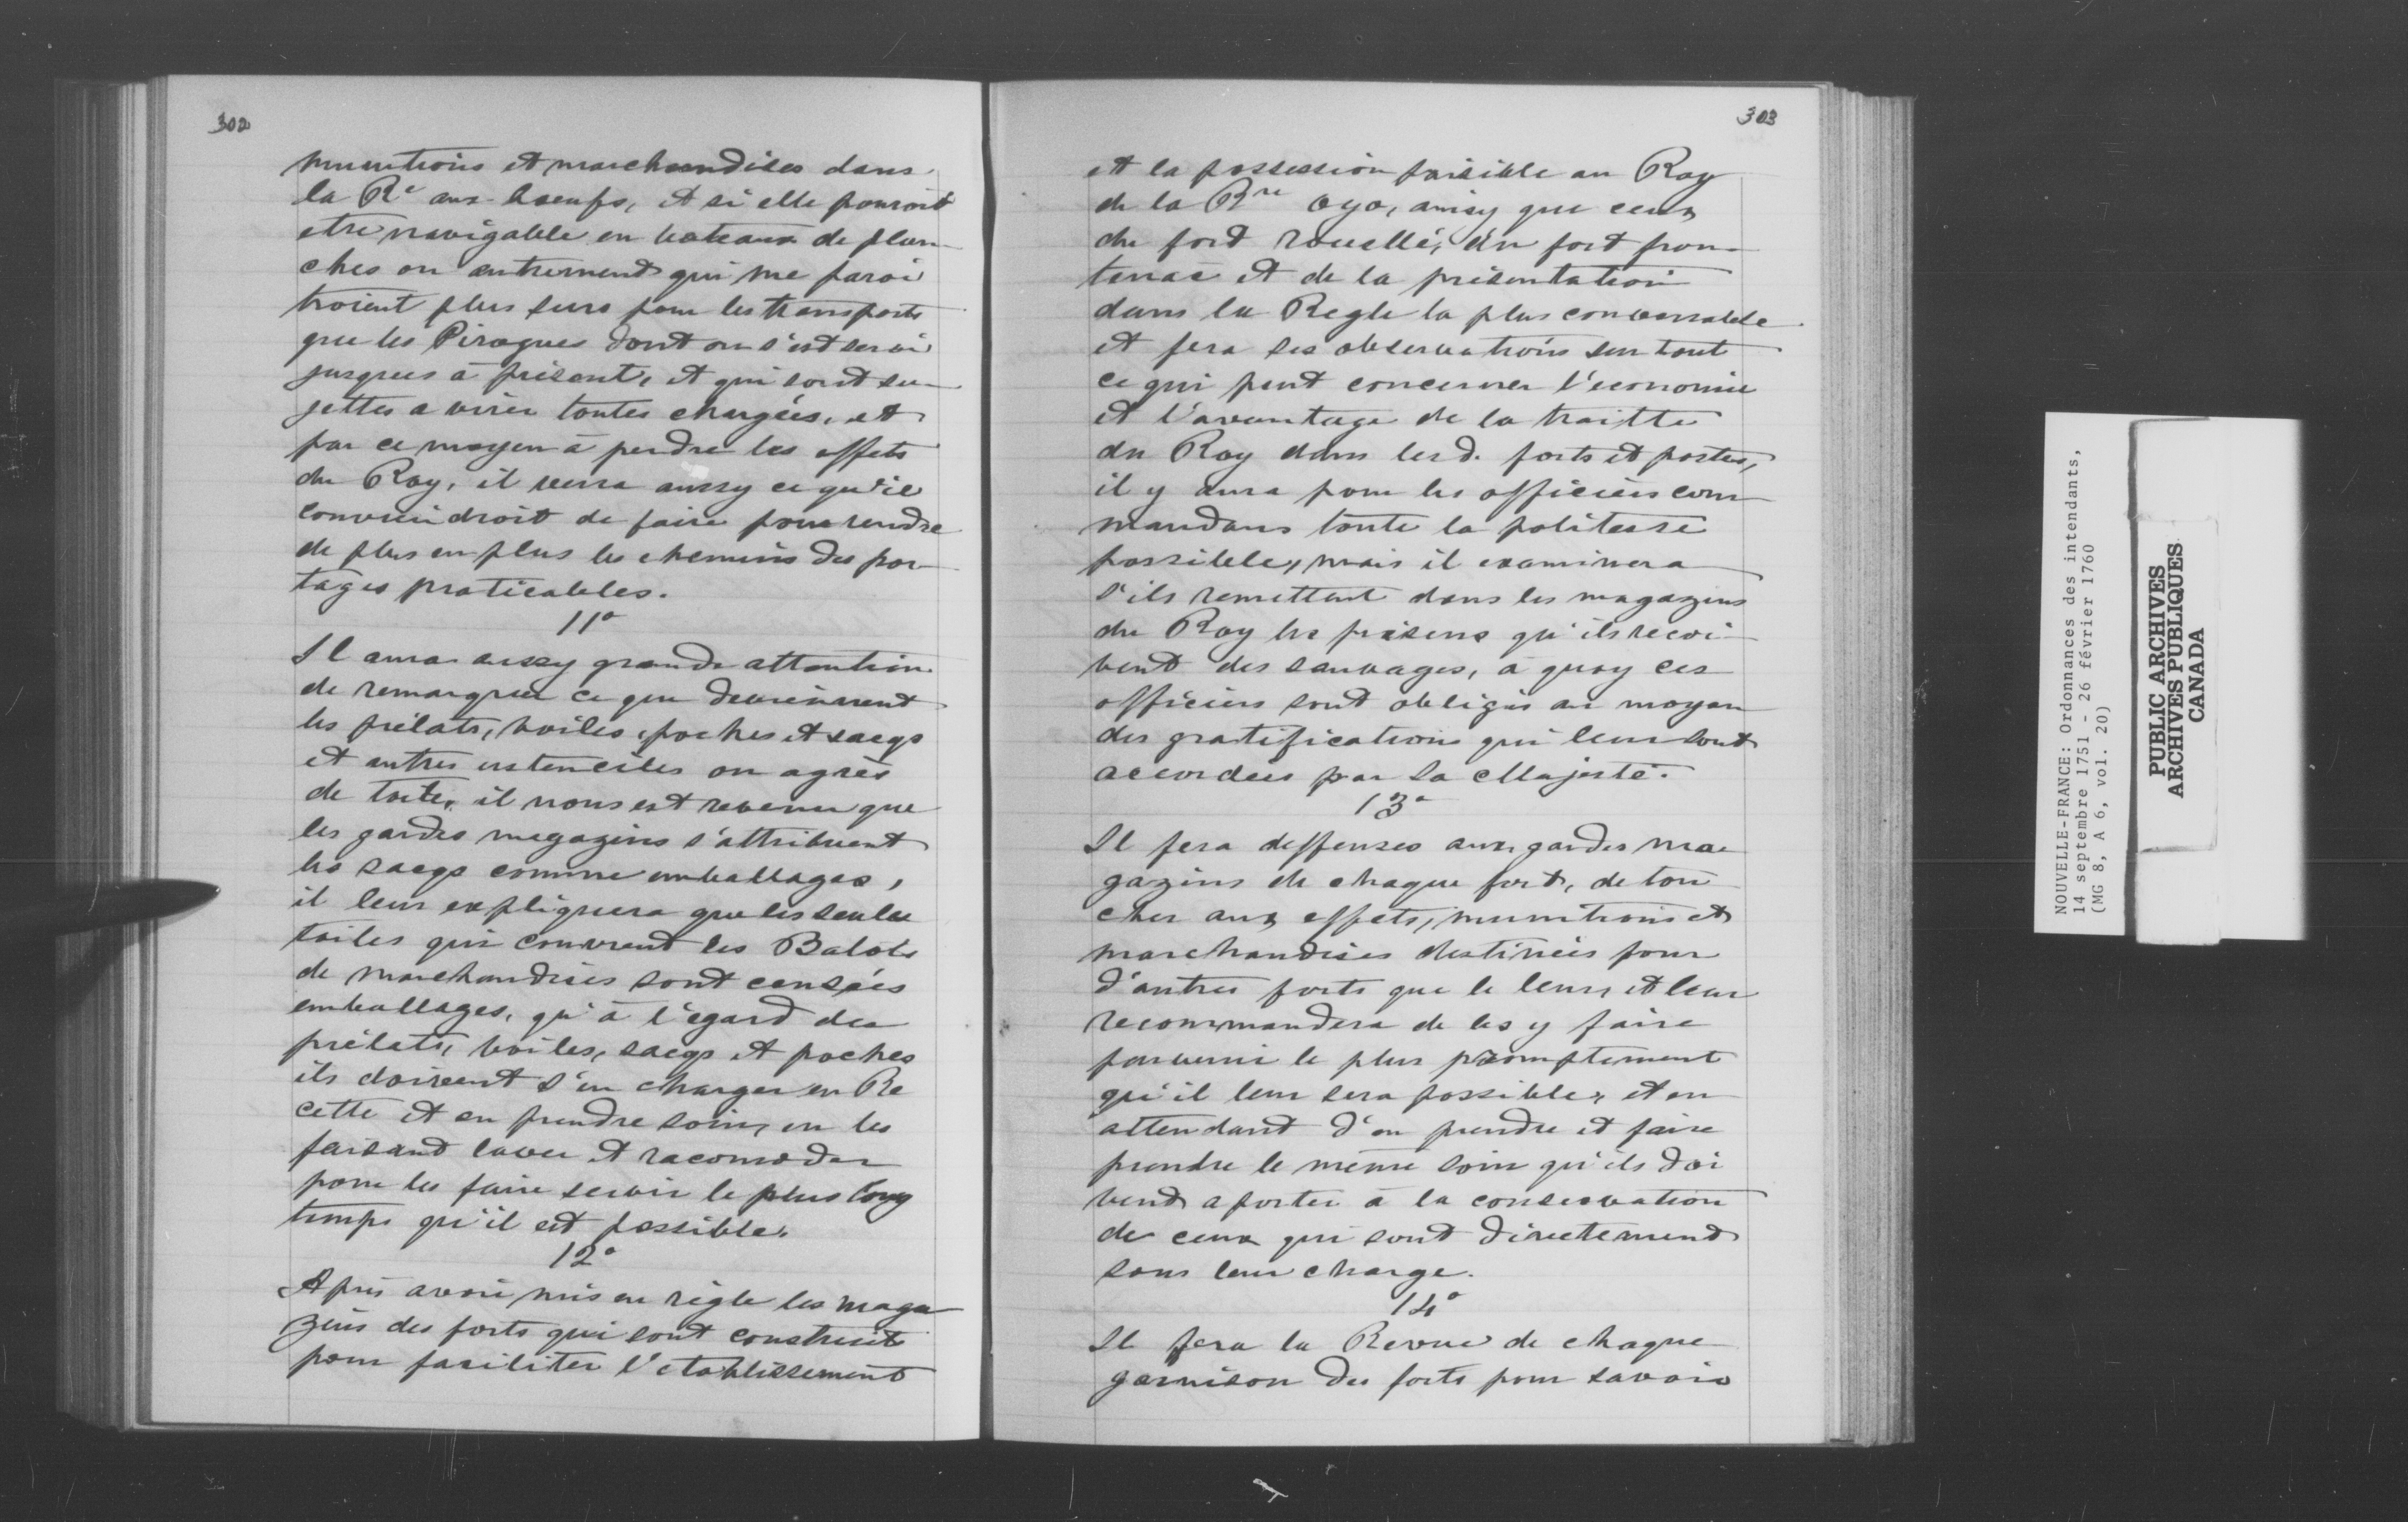 302
munitions et marchandises dans
la Re aux boeufs, et si elle pouroit
etre navigable en bateaux de plan-
ches ou autrement qui me paroi
troient plus seurs pour les transports
que les Pirogues dont on s'est servi
jusques à présent, et qui sont su-
jettes a virer toutes chargées, et
par ce moyen à perdre les effets
du Roy, il verra aussy ce qu'il
conviendroit de faire pour rendre
de plus en plus les chemins des por-
tages praticables.
11°
Il aura aussy grande attention
de remarquer ce que deviennent
les prélats, voiles, poches et sacqs
et autres ustenciles ou agrès
de toile, il nous est revenu que
les gardes magazins s'attribuent
les sacqs comme emballages,
il leur expliquera que les seules
toiles qui couvrent les Balots
de marchandises sont censées
emballages, qu'à l'égard des
prélats, voiles, sacqs et poches
ils doivent s'en charger en Re
cette et en prendre soin, en les
faisant laver et racomoder
pour les faire servir le plus long
temps qu'il est possible.
12°
Après avoir mis en règle les maga
zins des forts qui sont construits
pour faciliter l'etablissement
303
et la possession paisible au Roy
de la Bre oyo, ainsy que ceux
du fort rouellé, du fort fron-
tenac et de la présentation
dans la Regle la plus convenable
et fera ses observations sur tout
ce qui peut concerner l'economie
et l'avantage de la traitte
du Roy dans lesd. forts et postes,
il y aura pour les officiers com-
mandans toute la politesse
possible, mais il examinera
s'ils remettent dans les magazins
du Roy les présens qu'ils reçoi-
vent des sauvages, à quoy ces
officiers sont obligés au moyen
des gratifications qui leur sont
accordées par Sa Majesté.
13°
Il fera deffenses aux gardes ma-
gazins de chaque fort, de tou-
cher aux effets, munitions et
marchandises destinées pour
d'autres forts que le leur, et leur
recommandera de les y faire
parvenir le plus promptement
qu'il leur sera possible, et en
attendant d'en prendre et faire
prendre le même soin qu'ils doi
vent aporter à la conservation
de ceux qui sont directement
sous leur charge.
14°
Il fera la Revue de chaque
garnison des forts pour savoir
NOUVELLE-FRANCE: Ordonnances des intendants,
14 septembre 1751 - 26 février 1760
(MG 8, A 6, vol. 20)
PUBLIC ARCHIVES
ARCHIVES PUBLIQUES
CANADA